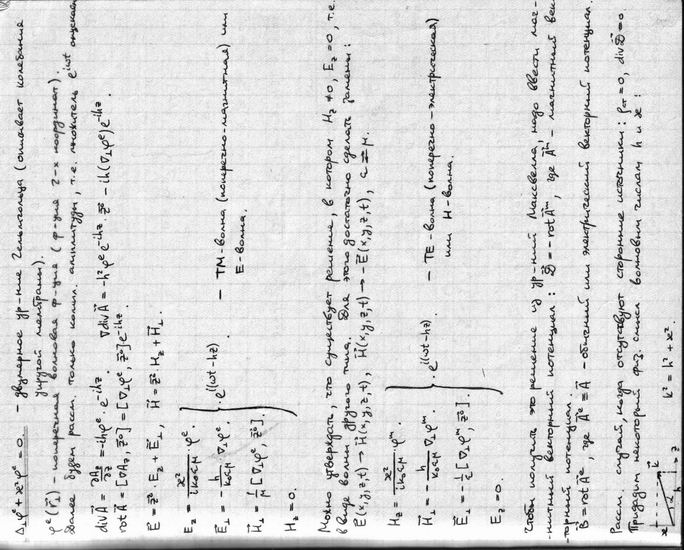 Δ⊥φᵉ + æ²φᵉ = 0. - двумерное ур-ние Гельмгольца (описывает колебания
упругой мембраны).
φᵉ(r⃗⊥) - поперечная волновая ф-ция (ф-ция 2-х координат).
Далее будем рассм. только компл. амплитуды, т.е. множитель e^{iωt} опускаем
div A⃗ = ∂A_z/∂z = -ihφᵉ · e^{-ihz}. ∇div A⃗ = -h²φᵉ e^{-ihz} · z⃗⁰ - ih(∇⊥φᵉ) e^{-ihz}
rot A⃗ = [∇A_z, z⃗⁰] = [∇⊥φᵉ, z⃗⁰] e^{-ihz}
E⃗ = z⃗⁰ · E_z + E⃗⊥, H⃗ = z⃗⁰ H_z + H⃗⊥.
E_z = æ²/(ik₀εμ) φᵉ.
E⃗⊥ = -h/(k₀εμ) ∇⊥φᵉ. } · e^{i(ωt-hz)} - TM-волна (поперечно-магнитная) или
H⃗⊥ = 1/μ [∇⊥φᵉ, z⃗⁰]. E-волна.
H_z = 0.
Можно утверждать, что существует решение, в котором H_z ≠ 0, E_z = 0, т.е.
в виде волны другого типа. Для этого достаточно сделать замены:
E⃗(x,y,z,t) → H⃗(x,y,z,t), H⃗(x,y,z,t) → -E⃗(x,y,z,t), ε ⇄ μ.
H_z = æ²/(ik₀εμ) φᵐ.
H⃗⊥ = -h/(k₀εμ) ∇⊥φᵐ. } · e^{i(ωt-hz)} - TE-волна (поперечно-электрическая)
E⃗⊥ = -1/ε [∇⊥φᵐ, z⃗⁰]. или H-волна.
E_z = 0.
Чтобы получить это решение из ур-ний Максвелла, надо ввести маг-
нитный векторный потенциал: D⃗ = -rot A⃗ᵐ, где A⃗ᵐ - магнитный век-
торный потенциал.
B⃗ = rot A⃗ᵉ, где A⃗ᵉ ≡ A⃗ - обычный или электрический векторный потенциал.
Рассм. случай, когда отсутствуют сторонние источники: ρ_ст = 0, div D⃗ = 0
Придадим некоторый физ. смысл волновым числам h и æ:
æ k⃗ h z k² = h² + æ².